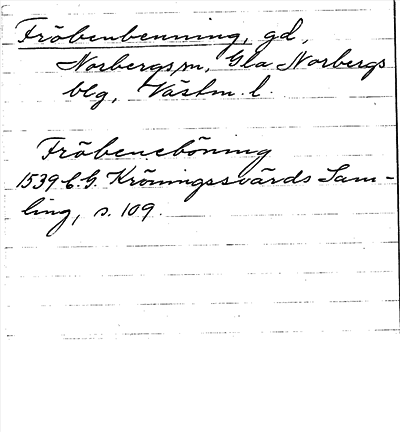 Fröbenbenning, gd,
Norbergs sn, Gla Norbergs
blg, Västm. l.
Fröbeneböning
1539 C.G. Kröningssvärds Sam-
ling, s. 109.